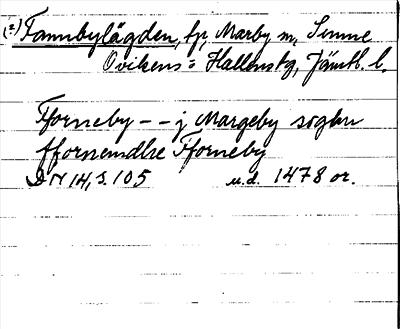 (?) Fannbylägden, fr, Marby sn, Sunne
Ovikens o Hallens tg, Jämtl. l.
Fforneby - - j Margeby soghn
fforneemdhe Fforneby
DN 14, s. 105 u.d. 1478 or.